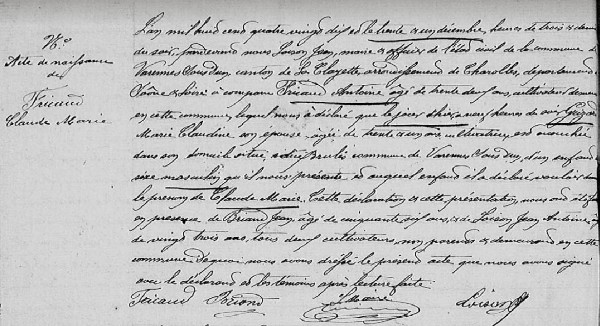 N°
Acte de naissance
de
Tricaud
Claude Marie
L'an mil huit cent quatre vingt dix et le trente et un décembre, heures de trois et demie
du soir, par devant nous Loison Jean, maire et officier de l'état civil de la commune de
Varennes sous Dun canton de La Clayette arrondissement de Charolles, département de
Saône et Loire a comparu Tricaud Antoine âgé de trente deux ans, cultivateur demeurant
en cette commune, lequel nous a déclaré que le jour d'hier à neuf heures du soir
Marie Claudine son épouse âgée de trente et un ans cultivatrice, est accouchée
dans son domicile situé commune de Varennes sous Dun, d'un enfant du
sexe masculin qu'il nous présente et auquel enfant il a déclaré vouloir donner
le prénom de Claude Marie. Cette déclaration et cette présentation nous ont été faites
en présence de Briand Jean, âgé de cinquante six ans, et de Loison Jean Antoine âgé
de vingt trois ans, tous deux cultivateurs, non parents, et demeurant en cette
commune. De quoi nous avons dressé le présent acte que nous avons signé
avec le déclarant et les témoins après lecture faite
Tricaud Briand le Maire Loison